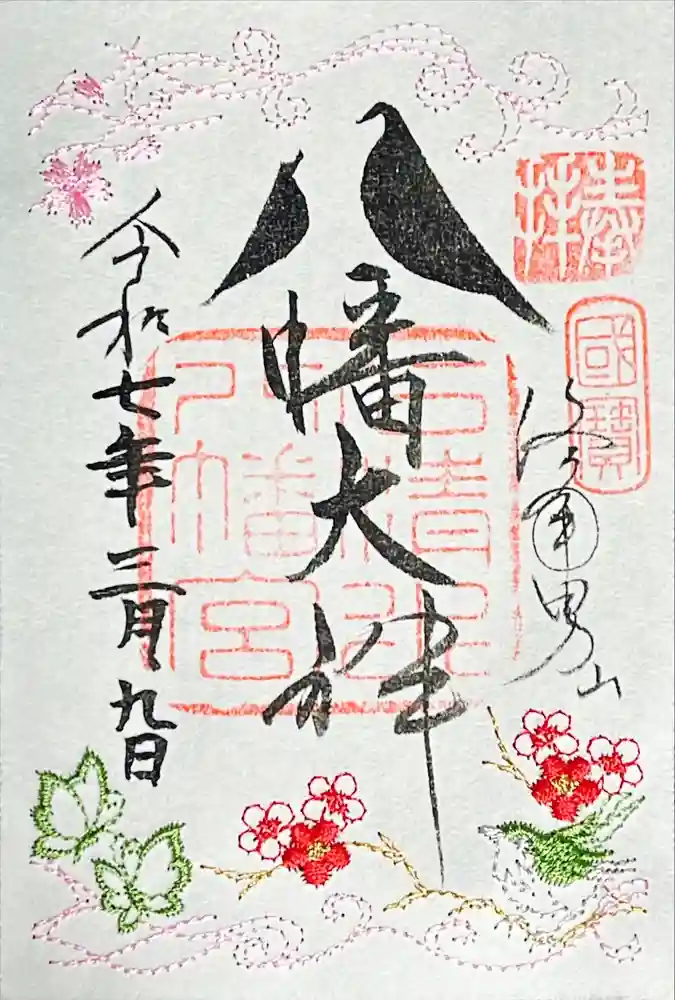 奉拝
國寶
男山
八幡大神
石清水八幡宮
令和七年三月九日